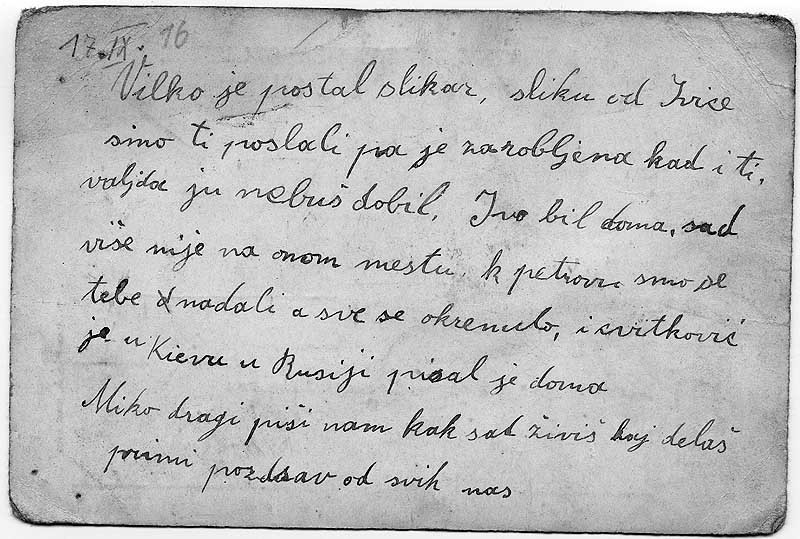 17. IX. 16
Vilko je postal slikar, sliku od Ivice
smo ti poslali pa je zarobljena kad i ti,
valjda ju nebuš dobil, Ivo bil doma, sad
više nije na onom mestu, k petrovu smo se
tebe nadali a sve se okrenulo, i cvitković
je u Kievu u Rusiji pisal je doma
Miko dragi piši nam kak sad živiš kaj delaš
primi pozdrav od svih nas